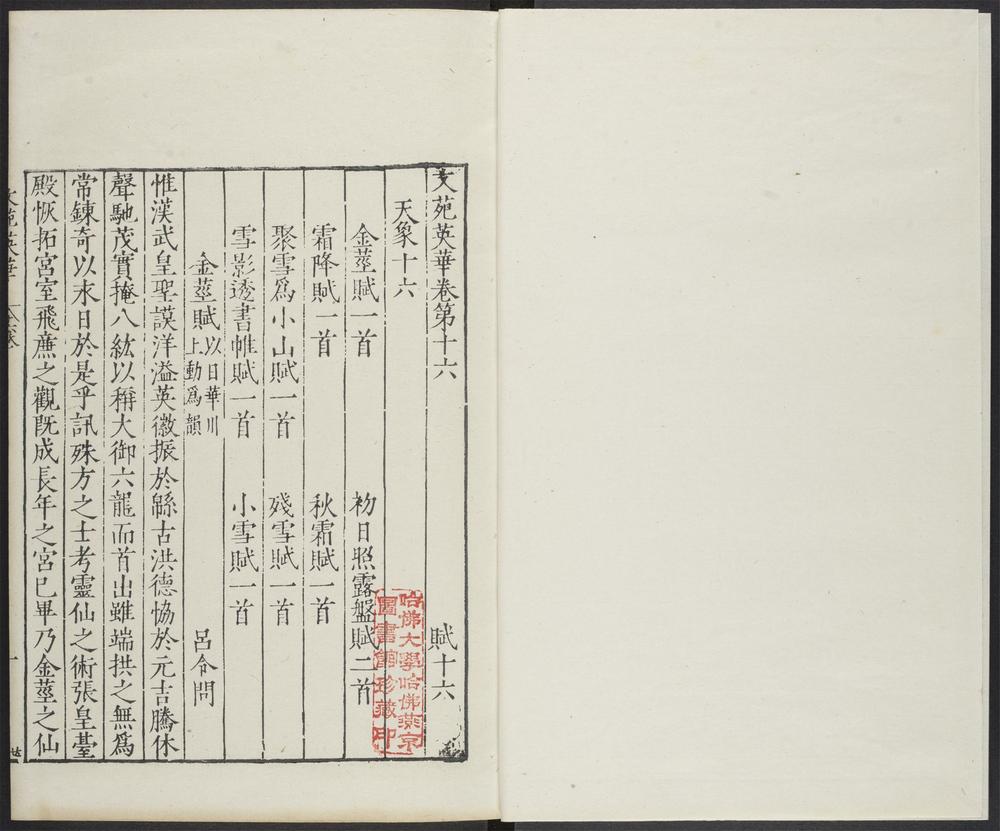 文苑英華卷第十六 賦十六
天象十六
金莖賦一首 初日照露盤賦二首
霜降賦一首 秋霜賦一首
聚雪爲小山賦一首 殘雪賦一首
雪影透書帷賦一首 小雪賦一首
金莖賦以日華川上動爲韻 呂令問
惟漢武皇聖謨洋溢英徽振於緜古洪德恊於元吉騰休
聲馳茂實掩八紘以稱大御六龍而首出雖端拱之無爲
常鍊奇以求日於是乎訊殊方之士考靈仙之術張皇臺
殿恢拓宮室飛廉之觀既成長年之宮已畢乃金莖之仙
文苑英華
一
哈佛大學哈佛燕京
圖書館珍藏印